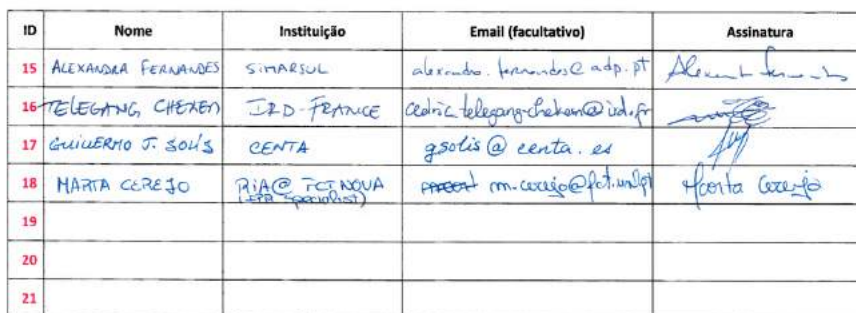 ID Nome Instituição Email (facultativo) Assinatura
15 ALEXANDRA FERNANDES SIMARSUL alexandra.fernandes@adp.pt
16 TELEGANG CHEKEM IRD-FRANCE cedric.telegang-chekem@ird.fr
17 GUILLERMO J. SOLÍS CENTA gsolis@centa.es
18 MARTA CEREJO RIA@FCT NOVA m.cerejo@fct.unl.pt Marta Cerejo
(IPR Specialist)
19
20
21